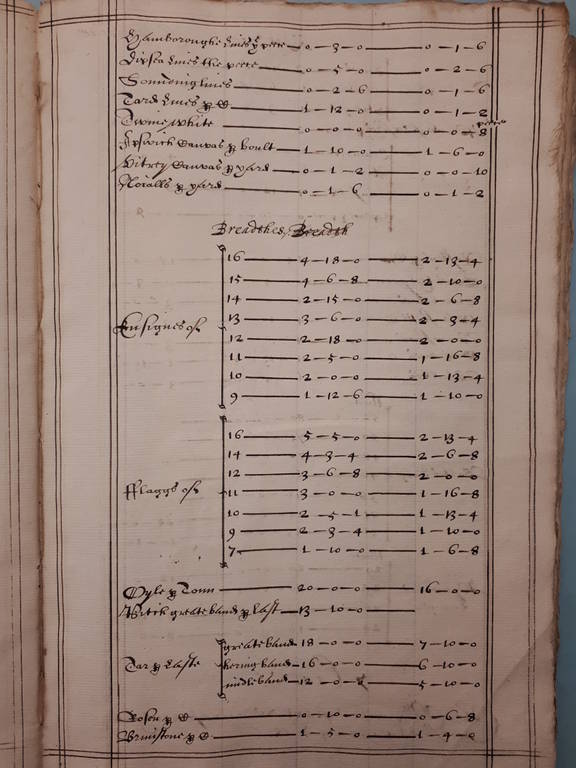 Hamboroughe Lines ꝑ peece — 0 – 3 – 0 — 0 – 1 – 6
Dipsea Lines the peece — 0 – 5 – 0 — 0 – 2 – 6
Soundinglines — 0 – 2 – 6 — 0 – 1 – 6
Tard Lines ꝑ C — 1 – 12 – 0 — 0 – 1 – 2
Twine white — 0 – 0 – 0 — 0 – 0 – 8
Ipswich Canvas ꝑ boult — 1 – 10 – 0 — 1 – 6 – 0
Vitrey Canvas ꝑ yard — 0 – 1 – 2 — 0 – 0 – 10
Noialls ꝑ yard — 0 – 1 – 6 — 0 – 1 – 2
Breadthes, Breadth
16 — 4 – 18 – 0 — 2 – 13 – 4
15 — 4 – 6 – 8 — 2 – 10 – 0
14 — 2 – 15 – 0 — 2 – 6 – 8
Ensignes of 13 — 3 – 6 – 0 — 2 – 3 – 4
12 — 2 – 18 – 0 — 2 – 0 – 0
11 — 2 – 5 – 0 — 1 – 16 – 8
10 — 2 – 0 – 0 — 1 – 13 – 4
9 — 1 – 12 – 6 — 1 – 10 – 0
16 — 5 – 5 – 0 — 2 – 13 – 4
14 — 4 – 3 – 4 — 2 – 6 – 8
12 — 3 – 6 – 8 — 2 – 0 – 0
fflaggs of 11 — 3 – 0 – 0 — 1 – 16 – 8
10 — 2 – 5 – 1 — 1 – 13 – 4
9 — 2 – 3 – 4 — 1 – 10 – 0
7 — 1 – 10 – 0 — 1 – 6 – 8
Oyle ꝑ Tonn — 20 – 0 – 0 — 16 – 0 – 0
Pitch greate band ꝑ Last — 13 – 10 – 0 —
greate band 18 – 0 – 0 — 7 – 10 – 0
Tar ꝑ Laste hering band — 16 – 0 – 0 — 6 – 10 – 0
midle band — 12 – 0 – 0 — 5 – 10 – 0
Rosen ꝑ C — 0 – 10 – 0 — 0 – 6 – 8
Brimstone ꝑ C — 1 – 5 – 0 — 1 – 4 – 0